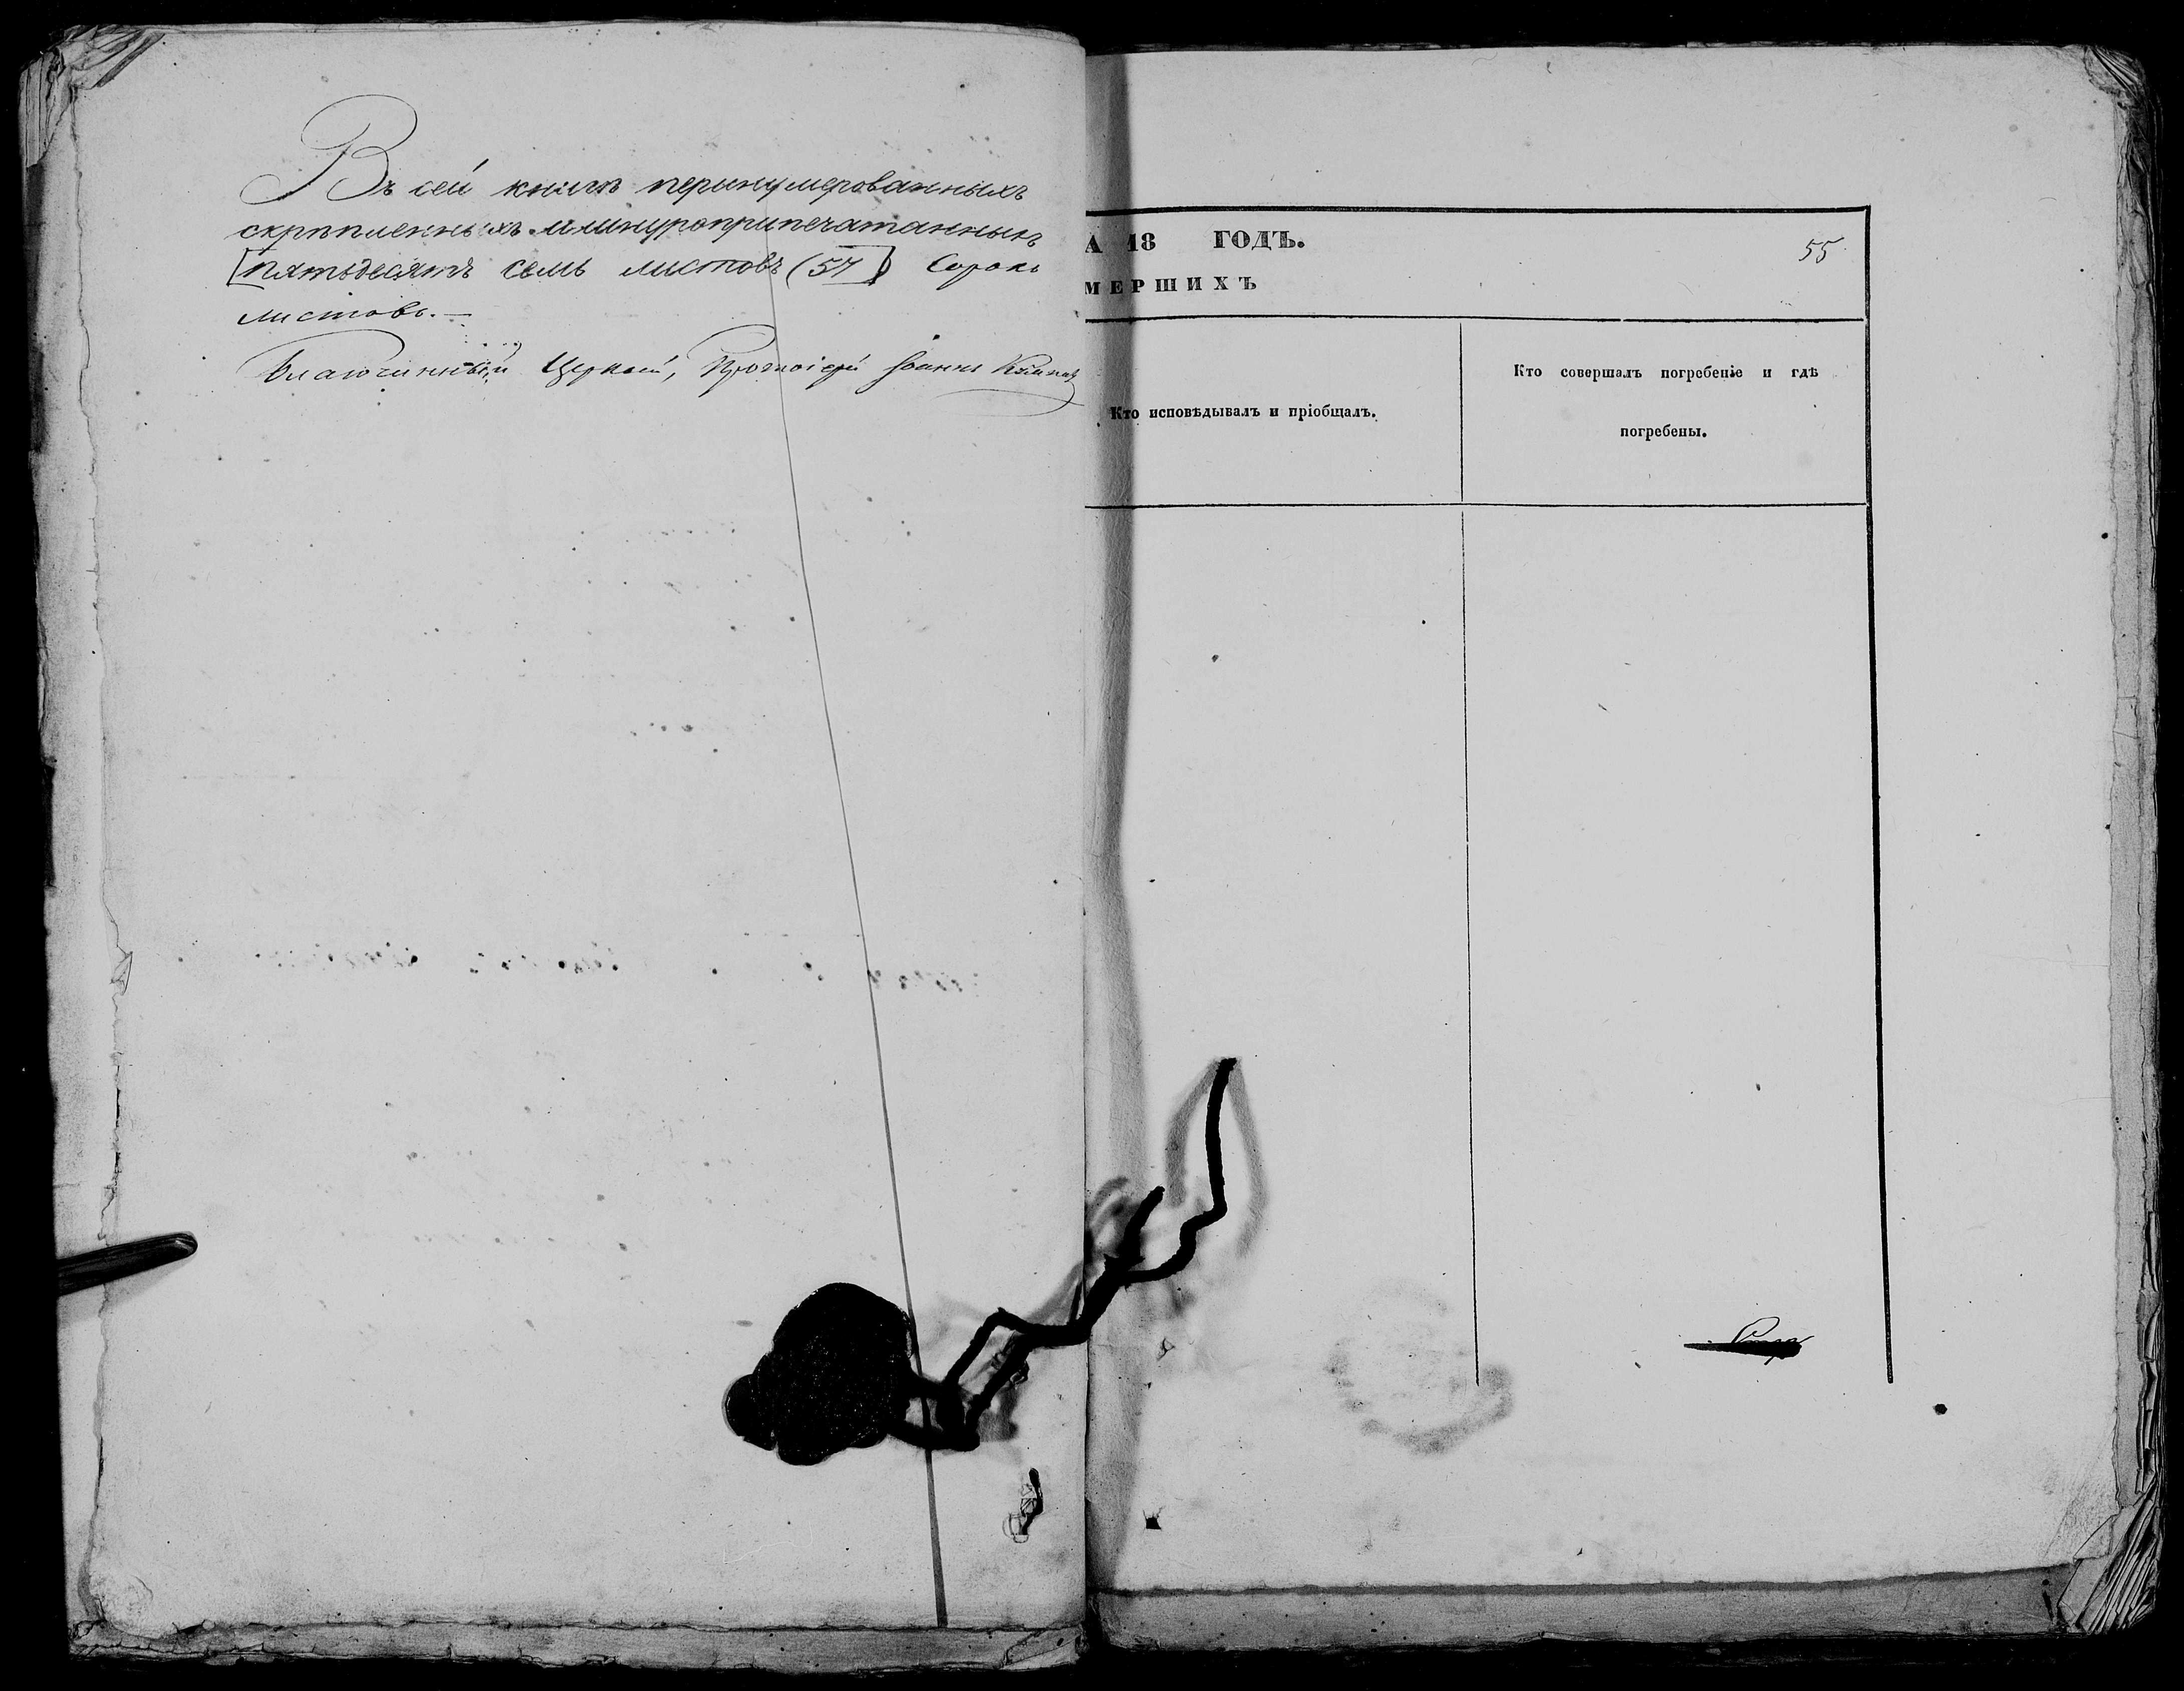 Въ сей книгѣ перенумерованныхъ
скрѣпленныхъ и шнуроприпечатанныхъ
[пятьдесятъ семь листовъ (57)] Сорокъ
листовъ.—
Благочинный Церквей, Протоіерей Іоаннъ
А 18 ГОДЪ.
55
МЕРШИХЪ
Кто исповѣдывалъ и пріобщалъ.
Кто совершалъ погребеніе и гдѣ
погребены.